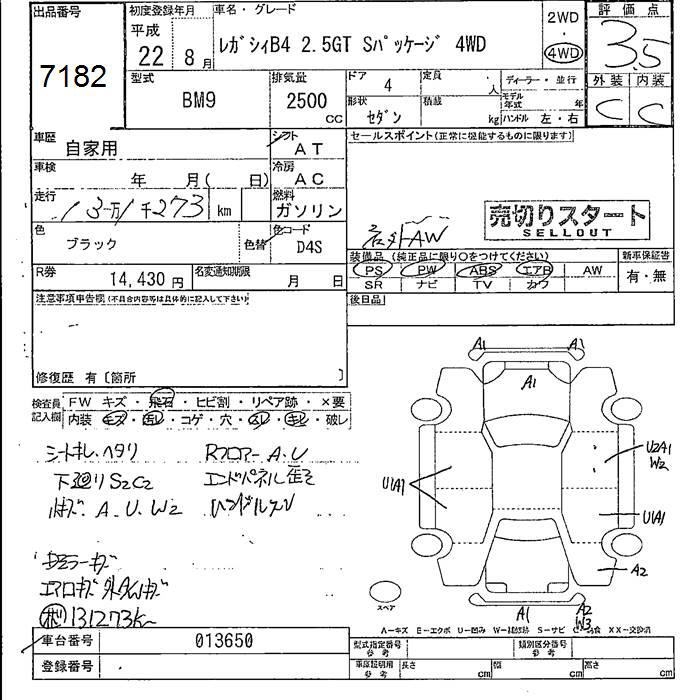 出品番号 初度登録年月 車名・グレード 評価点
7182 平成 22年 8月 レガシィB4 2.5GT Sパッケージ 4WD 2WD・4WD 3.5
型式 BM9 排気量 2500 CC ドア 4 定員 人 ディーラー・並行 外装 C 内装 C
形状 セダン 積載 kg モデル年式 年 ハンドル 左・右
車歴 自家用 シフト AT セールスポイント(正常に機能するものに限ります)
車検 年 月( 日) 冷房 AC
走行 13万1千273 km 燃料 ガソリン 売切りスタート
SELLOUT
社外AW
色 ブラック 色替 色コード D4S 装備品(純正品に限り○をつけてください) 新車保証書
R券 14,430円 名変通知期限 月 日 PS PW ABS エアB AW 有・無
SR ナビ TV カワ
注意事項申告欄(不具合内容等は具体的に記入して下さい) 後日品
修復歴 有[箇所 ]
検査員記入欄 FW キズ・飛石・ヒビ割・リペア跡・×要
内装 キズ・汚レ・コゲ・穴・スレ・キレ・破レ
シートキレ、ヘタリ Rフロアー A.U
下廻りS2C2 エンドパネル歪ミ
小キズ A.U.W2 ハンドルスレ
ドアミラーキズ
エアロキズ
131273K
A1 A1
A1
U2A1
W2
U1A1
U1A1
A2
スペア
A1 A2
W3
A―キズ E―エクボ U―凹み W―補修跡 S―サビ C―腐食 XX―交換済
車台番号 013650 型式指定番号 参考 類別区分番号 参考
登録番号 車庫証明用 参考 長さ cm 幅 cm 高さ cm